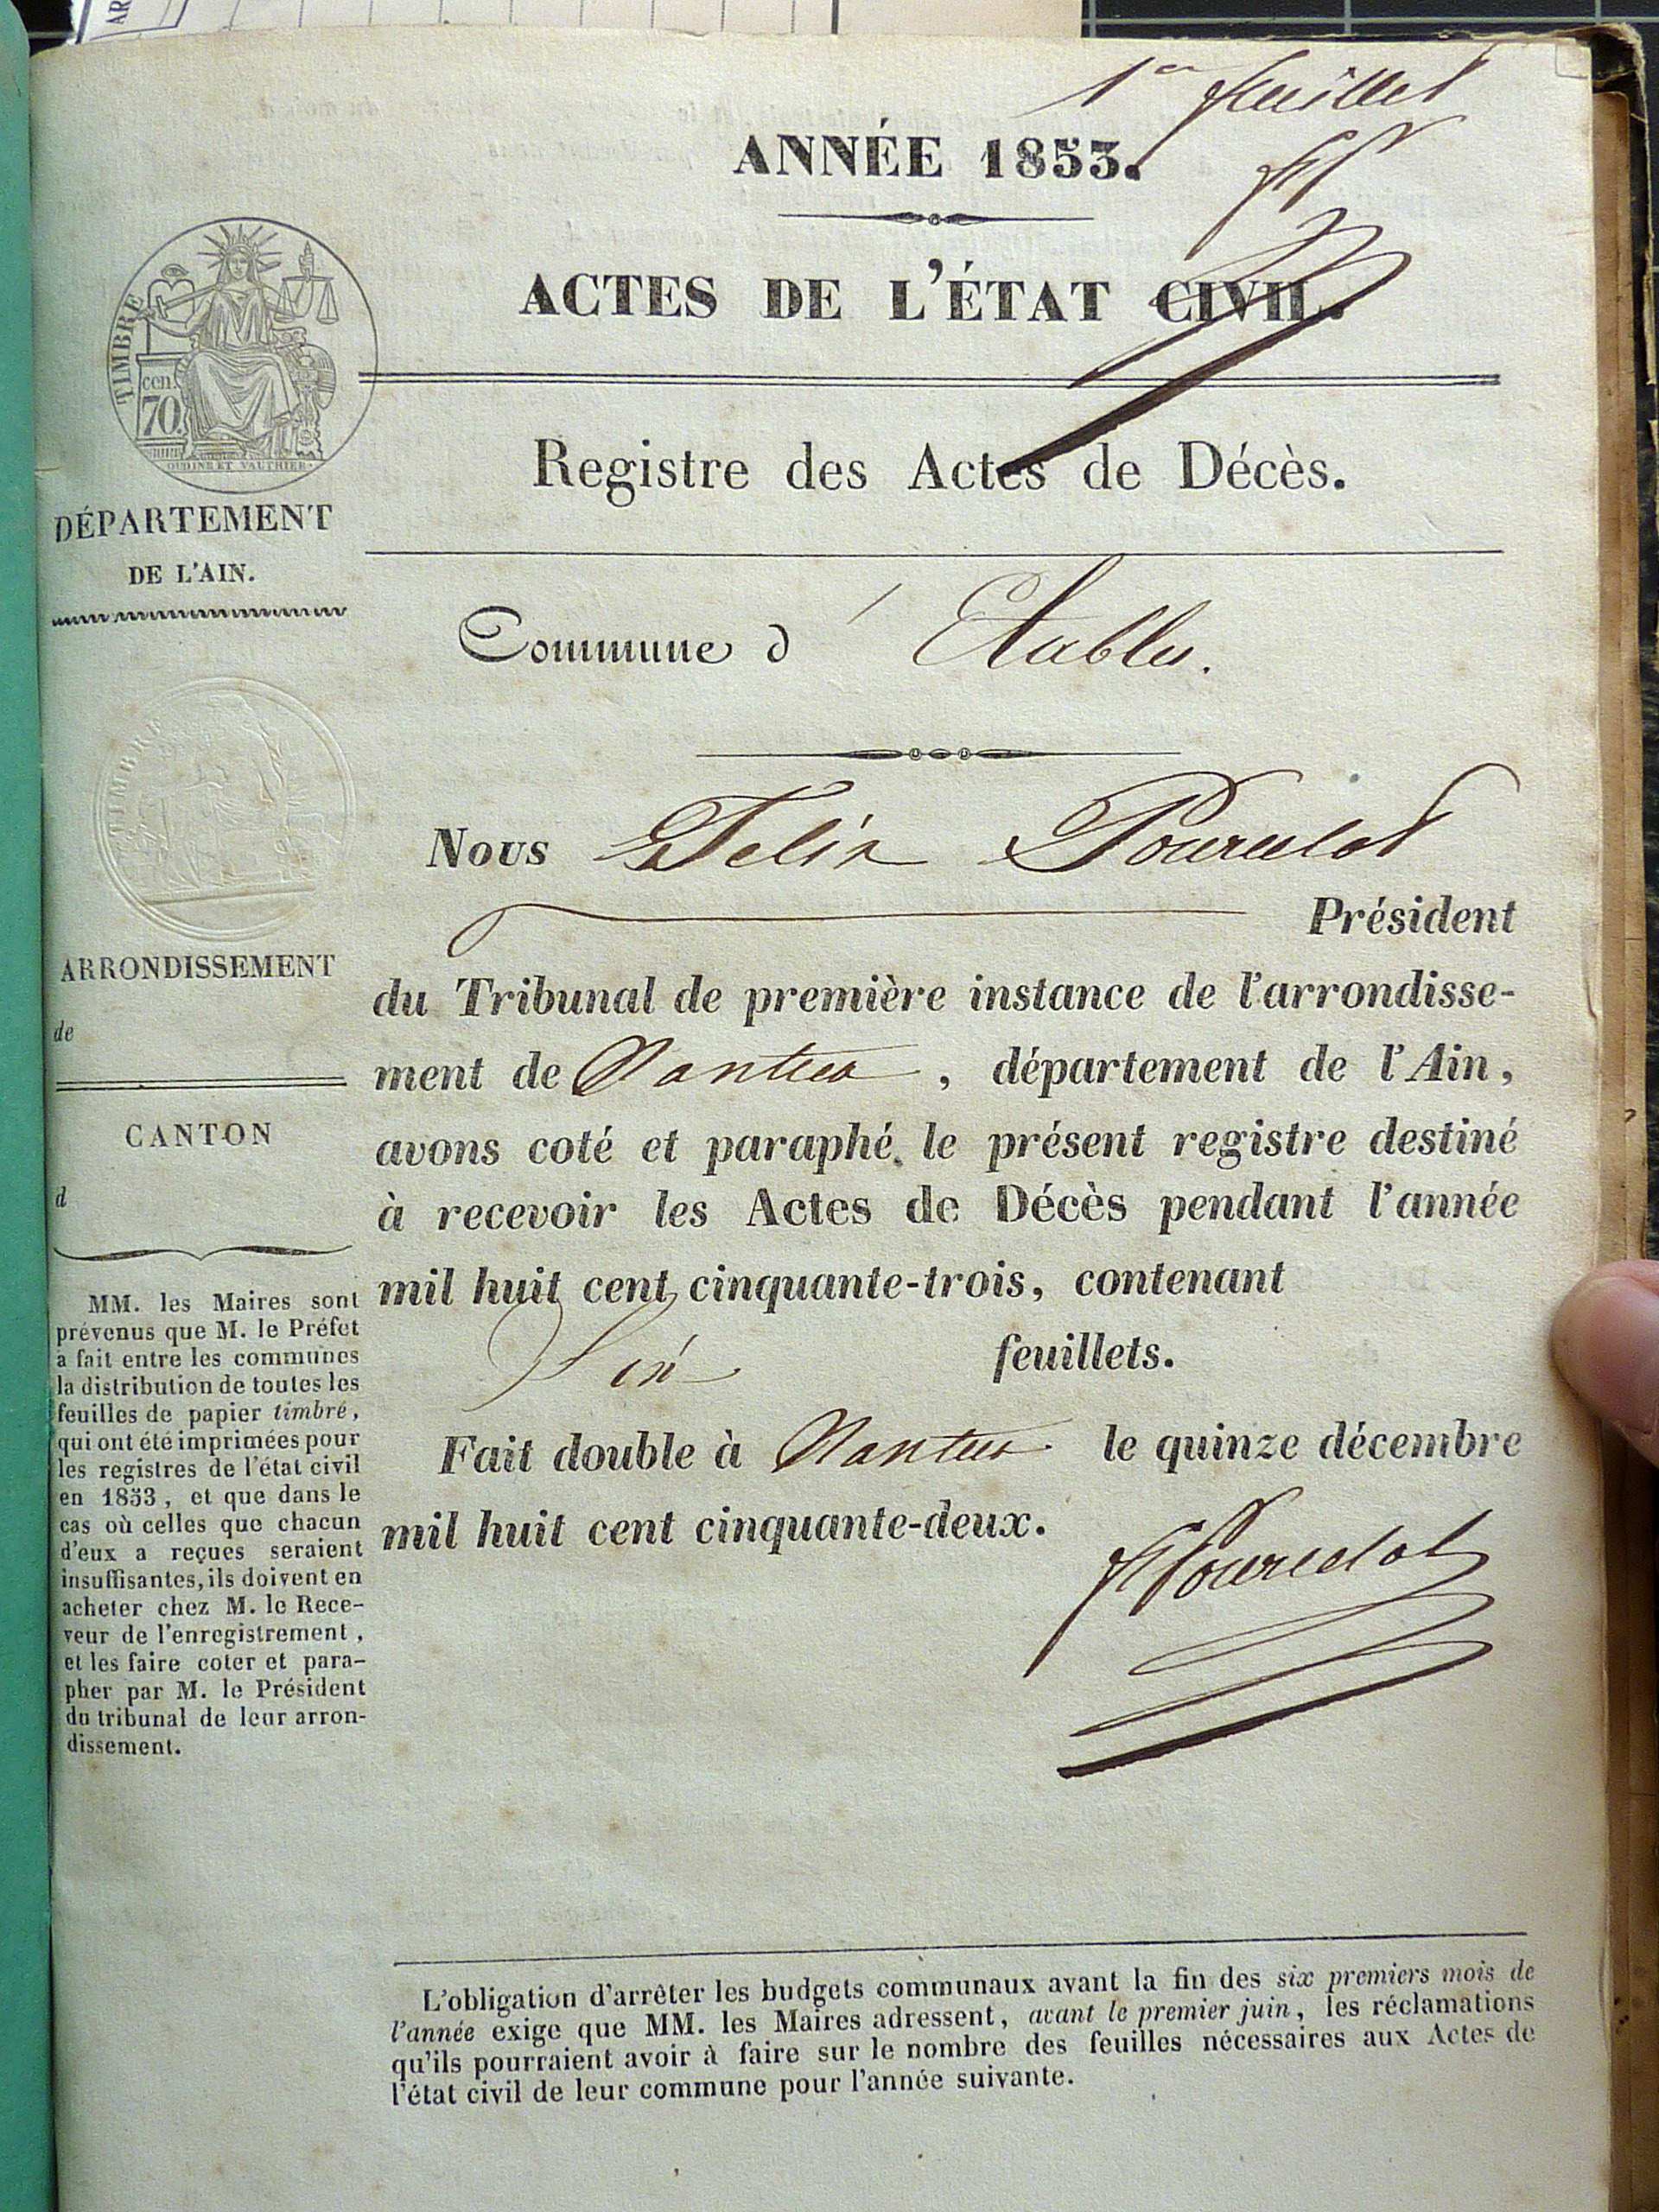 AR
1er feuillet
ANNÉE 1853.
fP
ACTES DE L'ÉTAT CIVIL.
TIMBRE
cen.
70.
OUDINE ET VAUTHIER
Registre des Actes de Décès.
DÉPARTEMENT
DE L'AIN.
Commune d'Etables.
TIMBRE
Nous Felix Pourcelot
Président
du Tribunal de première instance de l'arrondisse-
ment de Nantua, département de l'Ain,
avons coté et paraphé le présent registre destiné
à recevoir les Actes de Décès pendant l'année
mil huit cent cinquante-trois, contenant
Six feuillets.
Fait double à Nantua le quinze décembre
mil huit cent cinquante-deux.
fPourcelot
ARRONDISSEMENT
de
CANTON
d
MM. les Maires sont
prévenus que M. le Préfet
a fait entre les communes
la distribution de toutes les
feuilles de papier timbré,
qui ont été imprimées pour
les registres de l'état civil
en 1853, et que dans le
cas où celles que chacun
d'eux a reçues seraient
insuffisantes, ils doivent en
acheter chez M. le Rece-
veur de l'enregistrement,
et les faire coter et para-
pher par M. le Président
du tribunal de leur arron-
dissement.
L'obligation d'arrêter les budgets communaux avant la fin des six premiers mois de
l'année exige que MM. les Maires adressent, avant le premier juin, les réclamations
qu'ils pourraient avoir à faire sur le nombre des feuilles nécessaires aux Actes de
l'état civil de leur commune pour l'année suivante.